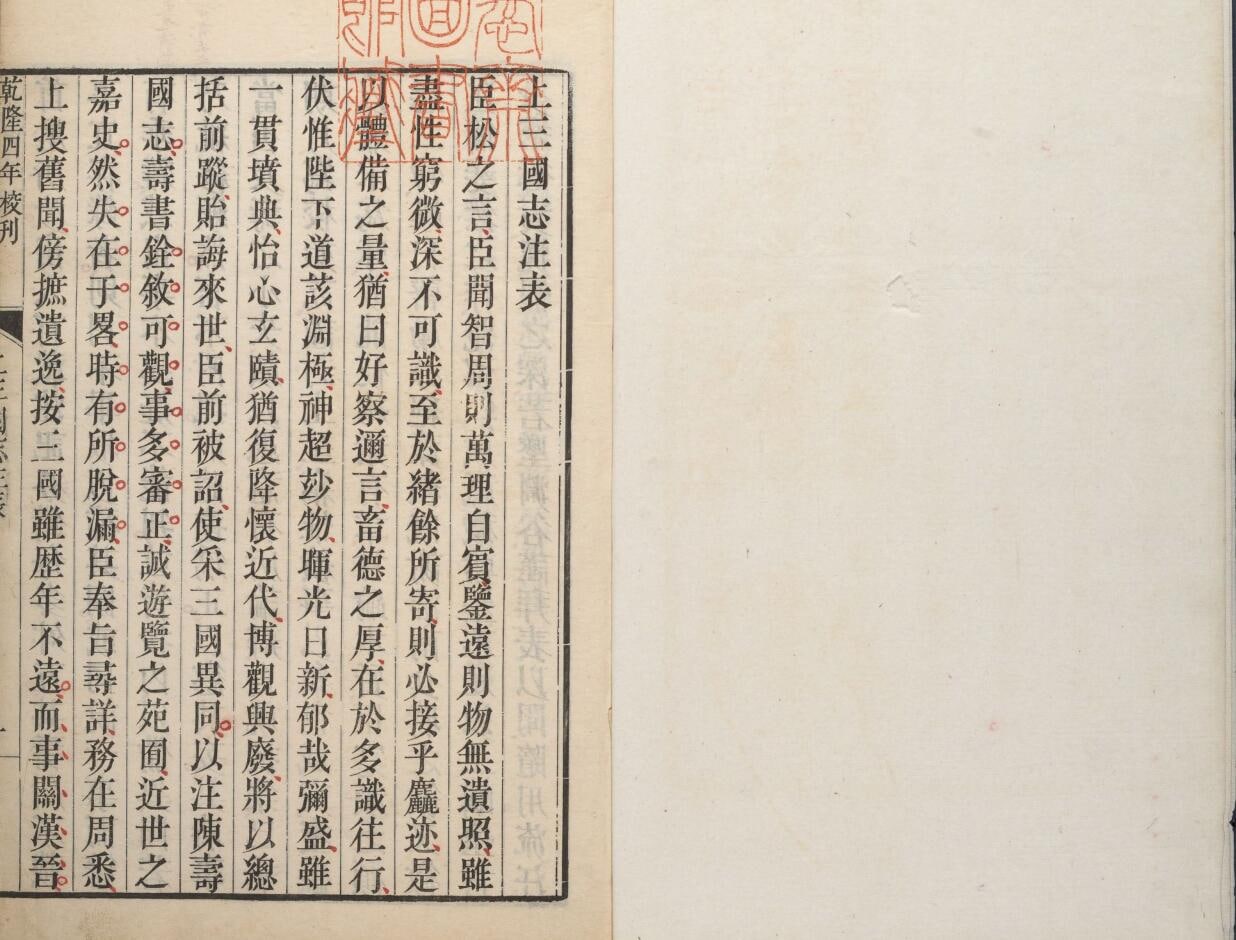 上三國志注表
臣松之言臣聞智周則萬理自賓鑒遠則物無遺照雖
盡性窮微深不可識至於緒餘所寄則必接乎麤迹是
以體備之量猶曰好察邇言畜德之厚在於多識往行
伏惟陛下道該淵極神超玅物暉光日新郁哉彌盛雖
一貫墳典怡心玄賾猶復降懷近代博觀興廢將以總
括前蹤貽誨來世臣前被詔使采三國異同以注陳壽
國志壽書銓敘可觀事多審正誠遊覽之苑囿近世之
嘉史然失在于畧時有所脫漏臣奉旨尋詳務在周悉
上搜舊聞傍摭遺逸按三國雖歷年不遠而事關漢晉
乾隆四年校刊